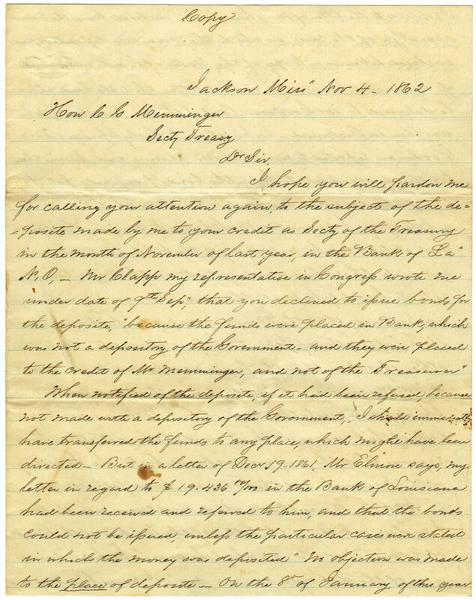 Copy
Jackson Missi Nov 4 - 1862
Hon C G Memminger
Secty Treasy
Dr Sir,
I hope you will pardon me
for calling your attention again, to the subjects of the de-
-posite made by me to your credit as Secty of the Treasury
in the month of November of last year, in the Bank of La
N.O, - Mr Clapp my representative in Congress, wrote me
under date of 9th Sep, "that you declined to issue bonds for
the deposite, "because the funds were placed in Bank, which
was not a depository of the Government - and they were placed
to the credit of Mr Memminger, and not of the Treasurer"
When notified of the deposite, if it had been refused, because
not made with a depository of the Government, I should immediately
have transferred the funds to any place, which might have been
directed - But in a letter of Decr 19. 1861, Mr Elmore says, my
letter in regard to $ 19.436 in the Bank of Louisiana
had been received and referred to him, and that the bonds
could not be issued, unless the particular cases were stated
in which the money was deposited" No objection was made
to the place of deposite - On the 8th of January of this year